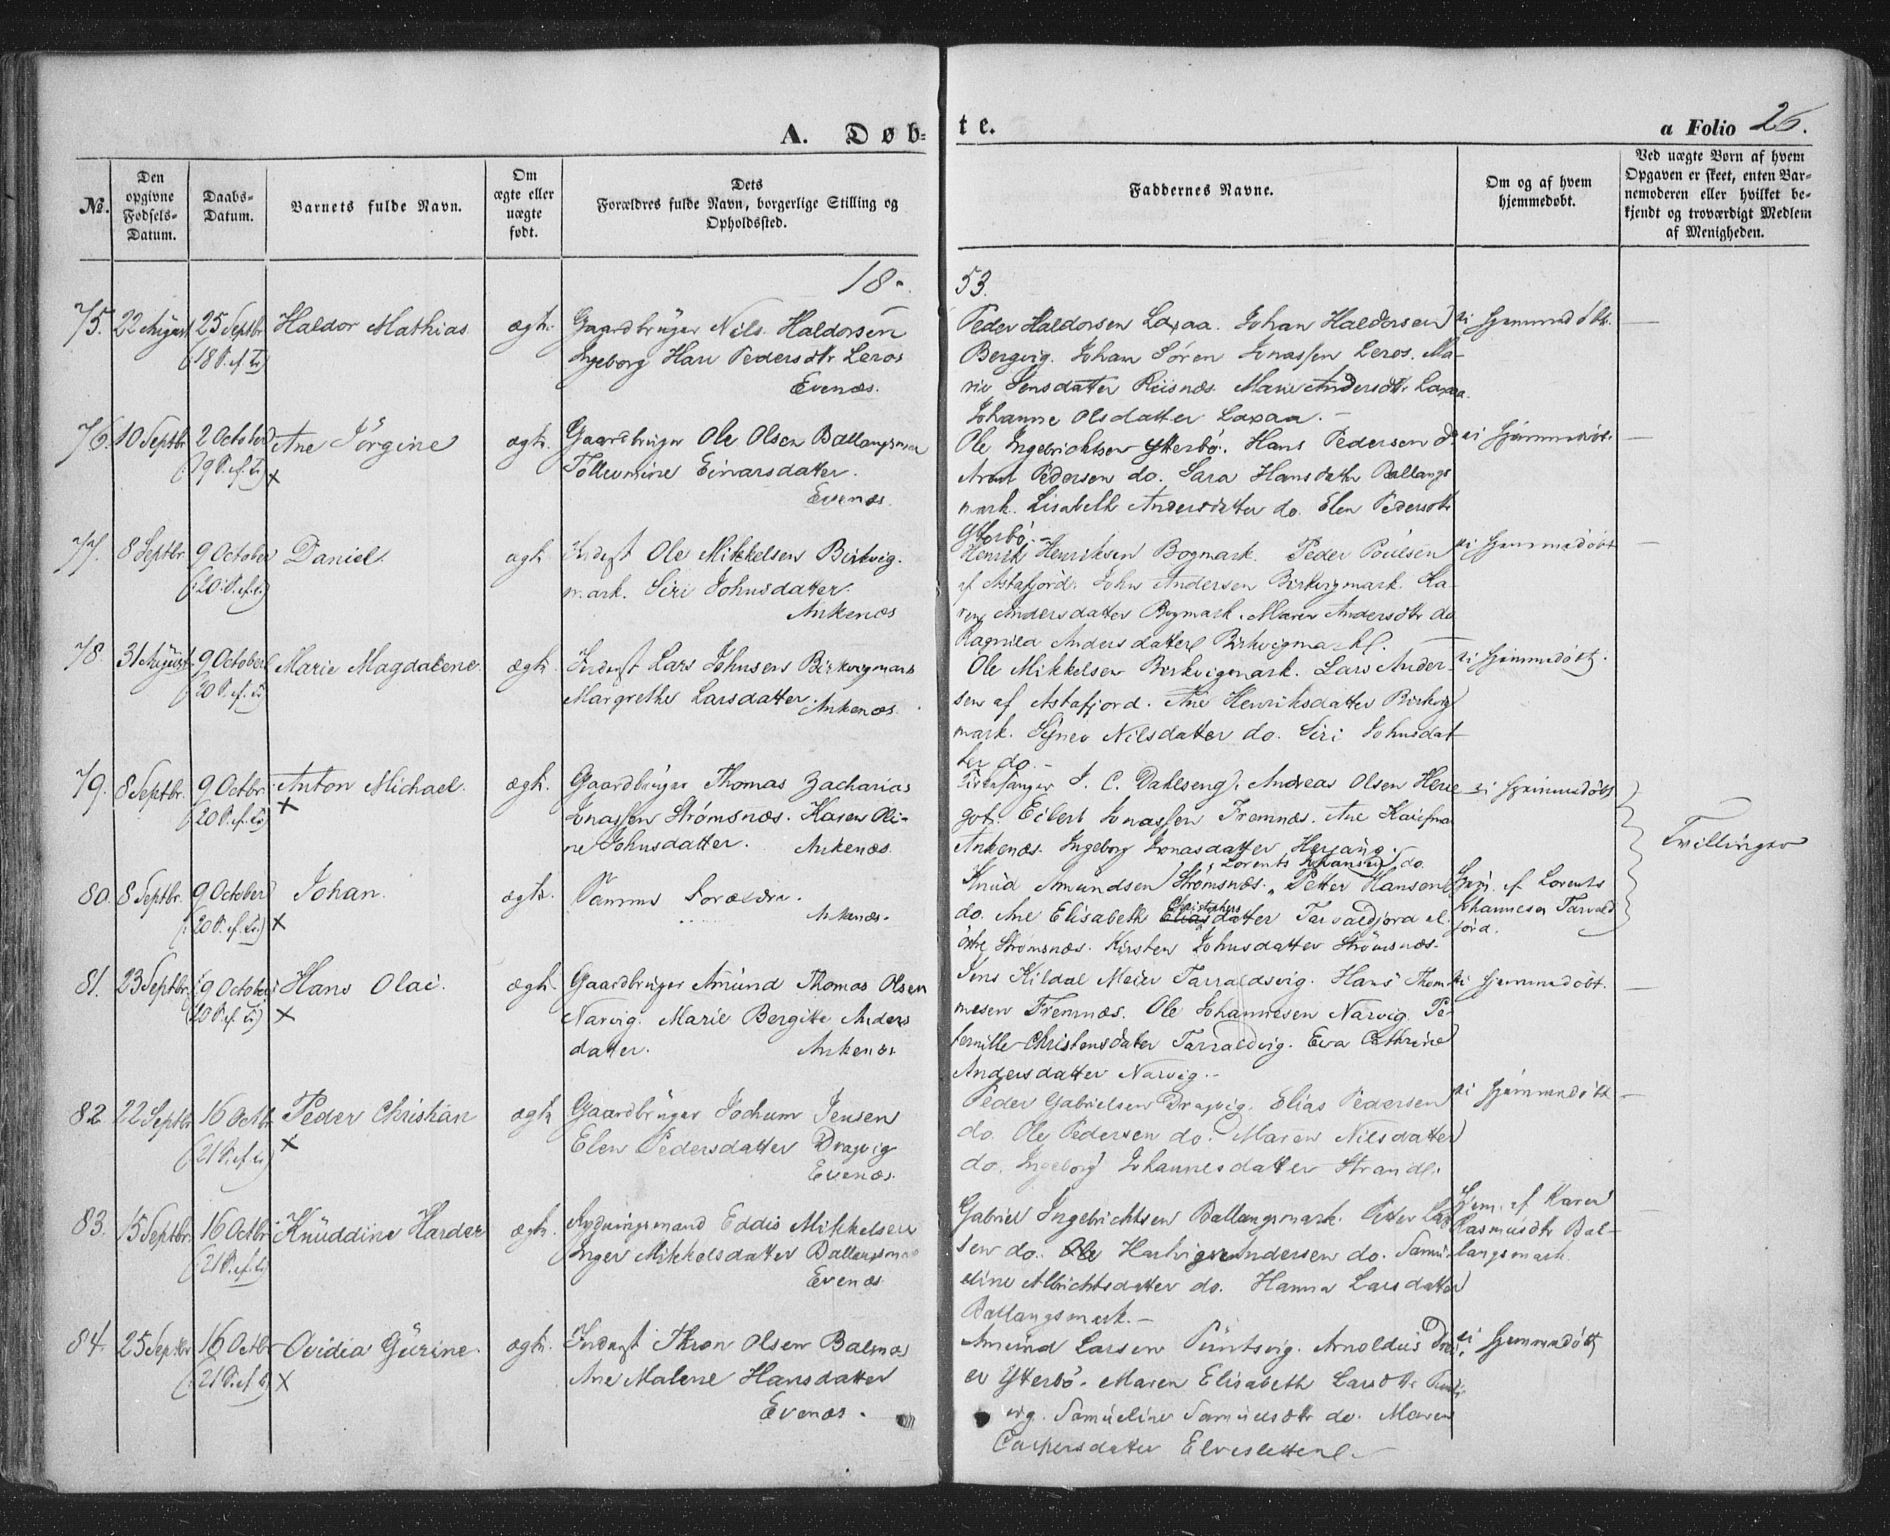 A. Døb=
te.
a Folio 26.
№.
Den opgivne Fødsels-Datum.
Daabs-Datum.
Barnets fulde Navn.
Om ægte eller uægte født.
Dets Forældres fulde Navn, borgerlige Stilling og Opholdssted.
Faddernes Navne.
Om og af hvem hjemmedøbt.
Ved uægte Børn af hvem Opgaven er skeet, enten Barnemoderen eller hvilket bekjendt og troværdigt Medlem af Menigheden.
18
53.
75. 22 August 25 Septbr (18 S. ef. Tr.) Haldor Mathias ægte.
Gaardbruger Nils Haldorsen
Ingeborg Pedersdtr Leros
Evenæs.
Peder Haldorsen Laxaa. Johan Haldorsen
Bergvig. Johan Sören Jonassen Leros. Ma-
rie Jensdatter Riisnæs. Marie Andersdtr Laxaa
Johanne Olsdatter Laxaa. –
ei hjemmedøbt. —
76. 10 Septbr 2 October (19 S. ef. Tr.) Ane Jörgine x ægte.
Gaardbruger Ole Olsen Ballangsmark
Einarsdatter.
Evenæs.
Ole Ingebrichtsen Ytterbö. Hans Pedersen do
Arnt Pedersen do. Sara Hansdatter Ballangs
mark. Lisabeth Andersdatter do. Elen Pedersdtr
Ytterbö. –
ei hjemmedøbt. —
77. 8 Septbr. 9 October (20 S. ef. Tr.) Daniel. ægte
Inderst Ole Mikkelsen Birkvig-
mark. Siri Johnsdatter.
Ankenæs
Henrik Henriksen Bogmark. Peder Poulsen
af Astafjord. John Andersen Birkvigmark. Ka-
ren Andersdatter Bogmark. Maren Andersdtr do
Ragnild Andersdatter Birkvigmark.
ei hjemmedøbt —
78. 31 August 9 October (20 S. ef. Tr.) Marie Magdalene. ægte
Inderst Lars Johnsen Birkvigmark
Margrethe Larsdatter. Ankenæs.
Ole Mikkelsen Birkvigmark. Lars Ander-
sen af Astafjord. Ane Henriksdatter Birkvig
mark. Nilsdatter do. Siri Johnsdat-
ter do. –
ei hjemmedøbt.
79. 8 Septbr. 9 Octbr. (20 S. ef. Tr.) Anton Michael. x ægte.
Gaardbruger Thomas Zacharias
Jonassen Strømsnæs. Karen Oli-
ne Johnsdatter. Ankenæs.
J. C. Dahlseng, Andreas Olsen
Eilert Jonassen Fremnæs. Ane
Ankenæs. Ingeborg Jonasdatter Herjang.
ei hjemmedøbt
Tvillinger
80. 8 Septbr. 9 October (20 S. ef. Tr.) x Johan. ægte.
Samme Forældre.
Ankenæs.
Lorents Johansen do.
Knud Amundsen Strømsnæs. Petter Hansen
do. Ane Elisabeth Elias Christophersdatter
Strømsnæs. Kirsten Johnsdatter Strømsnæs.
Hjem. af Lorents
Johannesen Tarald
fjord.
81. 23 Septbr. 9 October (20 S. ef. Tr.) Hans Olai. x ægte.
Gaardbruger Amund Thomas Olsen
Narvig. Marie Bergitte Anders
datter. Ankenæs
Jens Kildal Meier Taraldsvig. Hans Thom
mesen Fremnæs. Ole Johannesen Narvig. Pe-
ternille Christensdatter Taraldvig. Eva Cathrine
Andersdatter Narvig. –
ei hjemmedøbt. —
82 22 Septbr 16 Octbr (21 S. ef. Tr.) Peder Christian x ægte
Gaardbruger Jochum Jensen
Elen Pedersdatter Dragvig
Evenæs.
Peder Gabrielsen Dragvig. Elias Pedersen
do. Ole Pedersen do. Maren Nilsdatter
do. Ingeborg Johannesdatter Strand.
ei hjemmedøbt —
83. 15 Septbr. 16 Octbr (21 S. ef. Tr.) Knuddine Harder ægte.
Rydningsmand Eddis Mikkelsen
Inger Mikkelsdatter Ballangsmark
Evenæs.
Gabriel Ingebrichtsen Ballangsmark. Petter Lar
sen do. Ole Hartvig Andersen do. Samu-
eline Albrichtsdatter do. Hanna Larsdatter
Ballangsmark. –
Hjem. af Karen
Rasmusdtr Bal-
langsmark.
84. 25 Septbr 16 Octbr (21 S. ef. Tr.) x Ovidia Gurine. ægte.
Inderst Thron Olsen Balnæs
Ane Malene Hansdatter
Evenæs.
Amund Larsen Puntsvig. Arnoldus
Ytterbö. Maren Elisabeth Larsdtr Punts
vig. Samueline Samuelsdtr do. Maren
Caspersdatter Elvesletten. –
ei hjemmedøbt